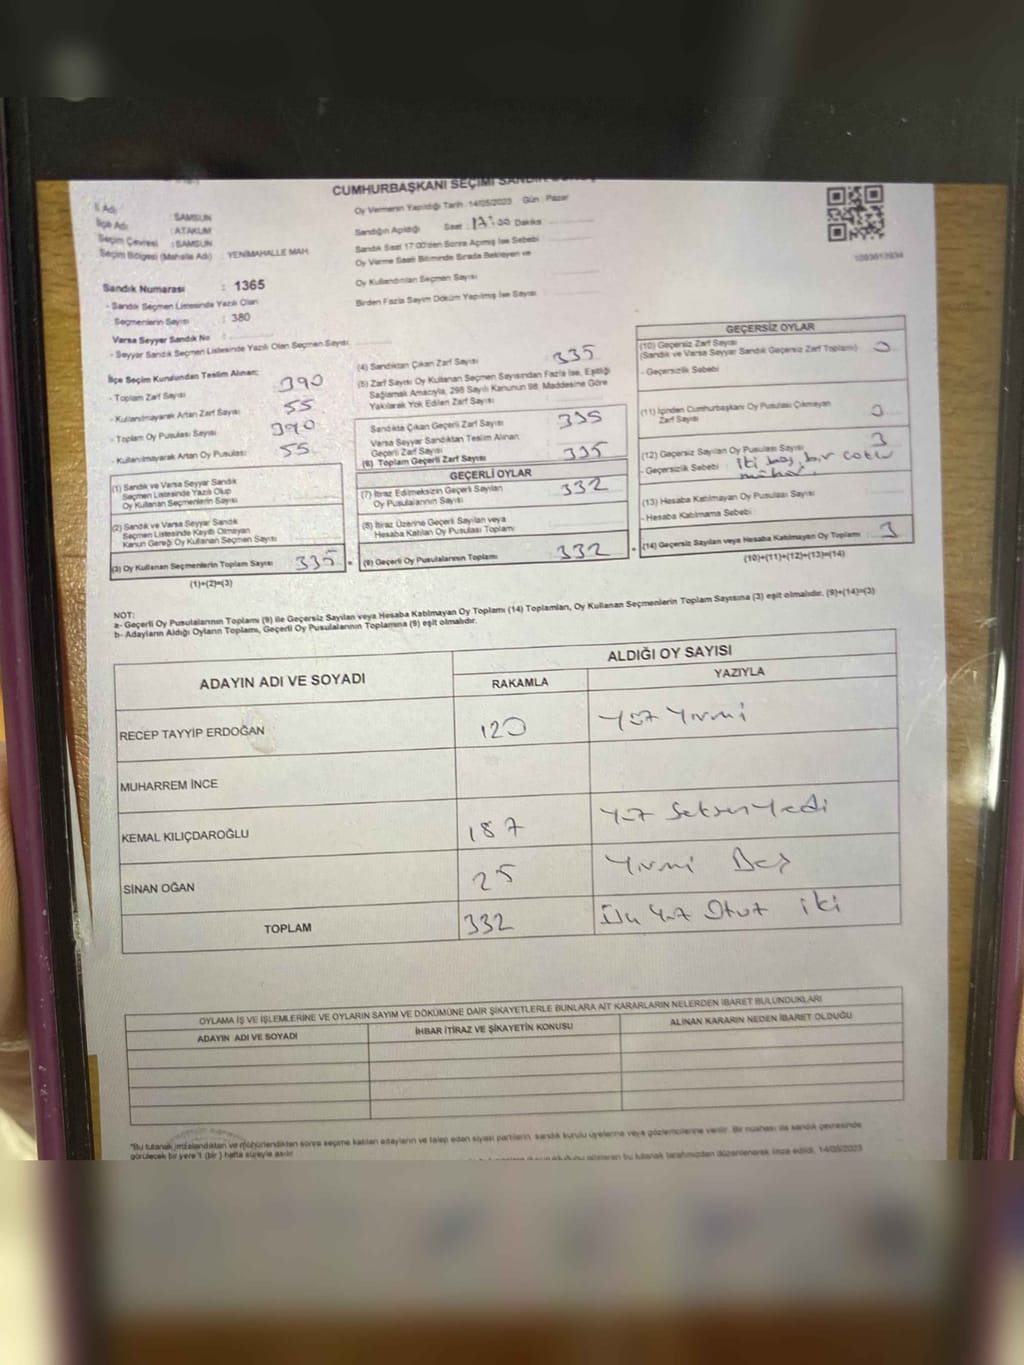 CUMHURBAŞKANI SEÇİMİ
İl Adı : SAMSUN
İlçe Adı : ATAKUM
Seçim Çevresi : SAMSUN
Seçim Bölgesi (Mahalle Adı) : YENİMAHALLE MAH.
Sandık Numarası : 1365
- Sandık Seçmen Listesinde Yazılı Olan
Seçmenlerin Sayısı : 380
Varsa Seyyar Sandık No :
- Seyyar Sandık Seçmen Listesinde Yazılı Olan Seçmen Sayısı
Oy Vermenin Yapıldığı Tarih : 14/05/2023 Gün : Pazar
Sandığın Açıldığı Saat : 17:00 Dakika
Sandık Saat 17:00'den Sonra Açılmış İse Sebebi
Oy Verme Saati Bitiminde Sırada Bekleyen ve
Oy Kullandırılan Seçmen Sayısı
Birden Fazla Sayım Döküm Yapılmış İse Sayısı
İlçe Seçim Kurulundan Teslim Alınan;
- Toplam Zarf Sayısı 390
- Kullanılmayarak Artan Zarf Sayısı 55
- Toplam Oy Pusulası Sayısı 390
- Kullanılmayarak Artan Oy Pusulası 55
(1) Sandık ve Varsa Seyyar Sandık
Seçmen Listesinde Yazılı Olup
Oy Kullanan Seçmenlerin Sayısı
(2) Sandık ve Varsa Seyyar Sandık
Seçmen Listesinde Kayıtlı Olmayan
Kanun Gereği Oy Kullanan Seçmen Sayısı
(3) Oy Kullanan Seçmenlerin Toplam Sayısı 335 =
(1)+(2)=(3)
(4) Sandıktan Çıkan Zarf Sayısı 335
(5) Zarf Sayısı Oy Kullanan Seçmen Sayısından Fazla İse, Eşitliği
Sağlamak Amacıyla, 298 Sayılı Kanunun 98. Maddesine Göre
Yakılarak Yok Edilen Zarf Sayısı
Sandıkta Çıkan Geçerli Zarf Sayısı 335
Varsa Seyyar Sandıktan Teslim Alınan
Geçerli Zarf Sayısı
(6) Toplam Geçerli Zarf Sayısı 335
GEÇERLİ OYLAR
(7) İtiraz Edilmeksizin Geçerli Sayılan
Oy Pusulalarının Sayısı 332
(8) İtiraz Üzerine Geçerli Sayılan veya
Hesaba Katılan Oy Pusulası Toplamı
(9) Geçerli Oy Pusulalarının Toplamı 332 +
GEÇERSİZ OYLAR
(10) Geçersiz Zarf Sayısı
(Sandık ve Varsa Seyyar Sandık Geçersiz Zarf Toplamı) 0
- Geçersizlik Sebebi
(11) İçinden Cumhurbaşkanı Oy Pusulası Çıkmayan
Zarf Sayısı 0
(12) Geçersiz Sayılan Oy Pusulası Sayısı 3
- Geçersizlik Sebebi : İki boş, bir
(13) Hesaba Katılmayan Oy Pusulası Sayısı
- Hesaba Katılmama Sebebi
(14) Geçersiz Sayılan veya Hesaba Katılmayan Oy Toplamı 3
(10)+(11)+(12)+(13)=(14)
NOT:
a- Geçerli Oy Pusulalarının Toplamı (9) ile Geçersiz Sayılan veya Hesaba Katılmayan Oy Toplamı (14) Toplamları, Oy Kullanan Seçmenlerin Toplam Sayısına (3) eşit olmalıdır. (9)+(14)=(3)
b- Adayların Aldığı Oyların Toplamı, Geçerli Oy Pusulalarının Toplamına (9) eşit olmalıdır.
ADAYIN ADI VE SOYADI
ALDIĞI OY SAYISI
RAKAMLA YAZIYLA
RECEP TAYYİP ERDOĞAN 120 Yüz Yirmi
MUHARREM İNCE
KEMAL KILIÇDAROĞLU 187 Yüz Seksen Yedi
SİNAN OĞAN 25 Yirmi Beş
TOPLAM 332 Üç Yüz Otuz iki
OYLAMA İŞ VE İŞLEMLERİNE VE OYLARIN SAYIM VE DÖKÜMÜNE DAİR ŞİKAYETLERLE BUNLARA AİT KARARLARIN NELERDEN İBARET BULUNDUKLARI
ADAYIN ADI VE SOYADI İHBAR İTİRAZ VE ŞİKAYETİN KONUSU ALINAN KARARIN NEDEN İBARET OLDUĞU
"Bu tutanak imzalandıktan ve mühürlendikten sonra seçime katılan adayların ve talep eden siyasi partilerin, sandık kurulu üyelerine veya gözlemcilerine verilir. Bir nüshası da sandık çevresinde
görülecek bir yere 1 (bir) hafta süreyle asılır.
bu tutanak tarafımızdan düzenlenerek imza edildi. 14/05/2023